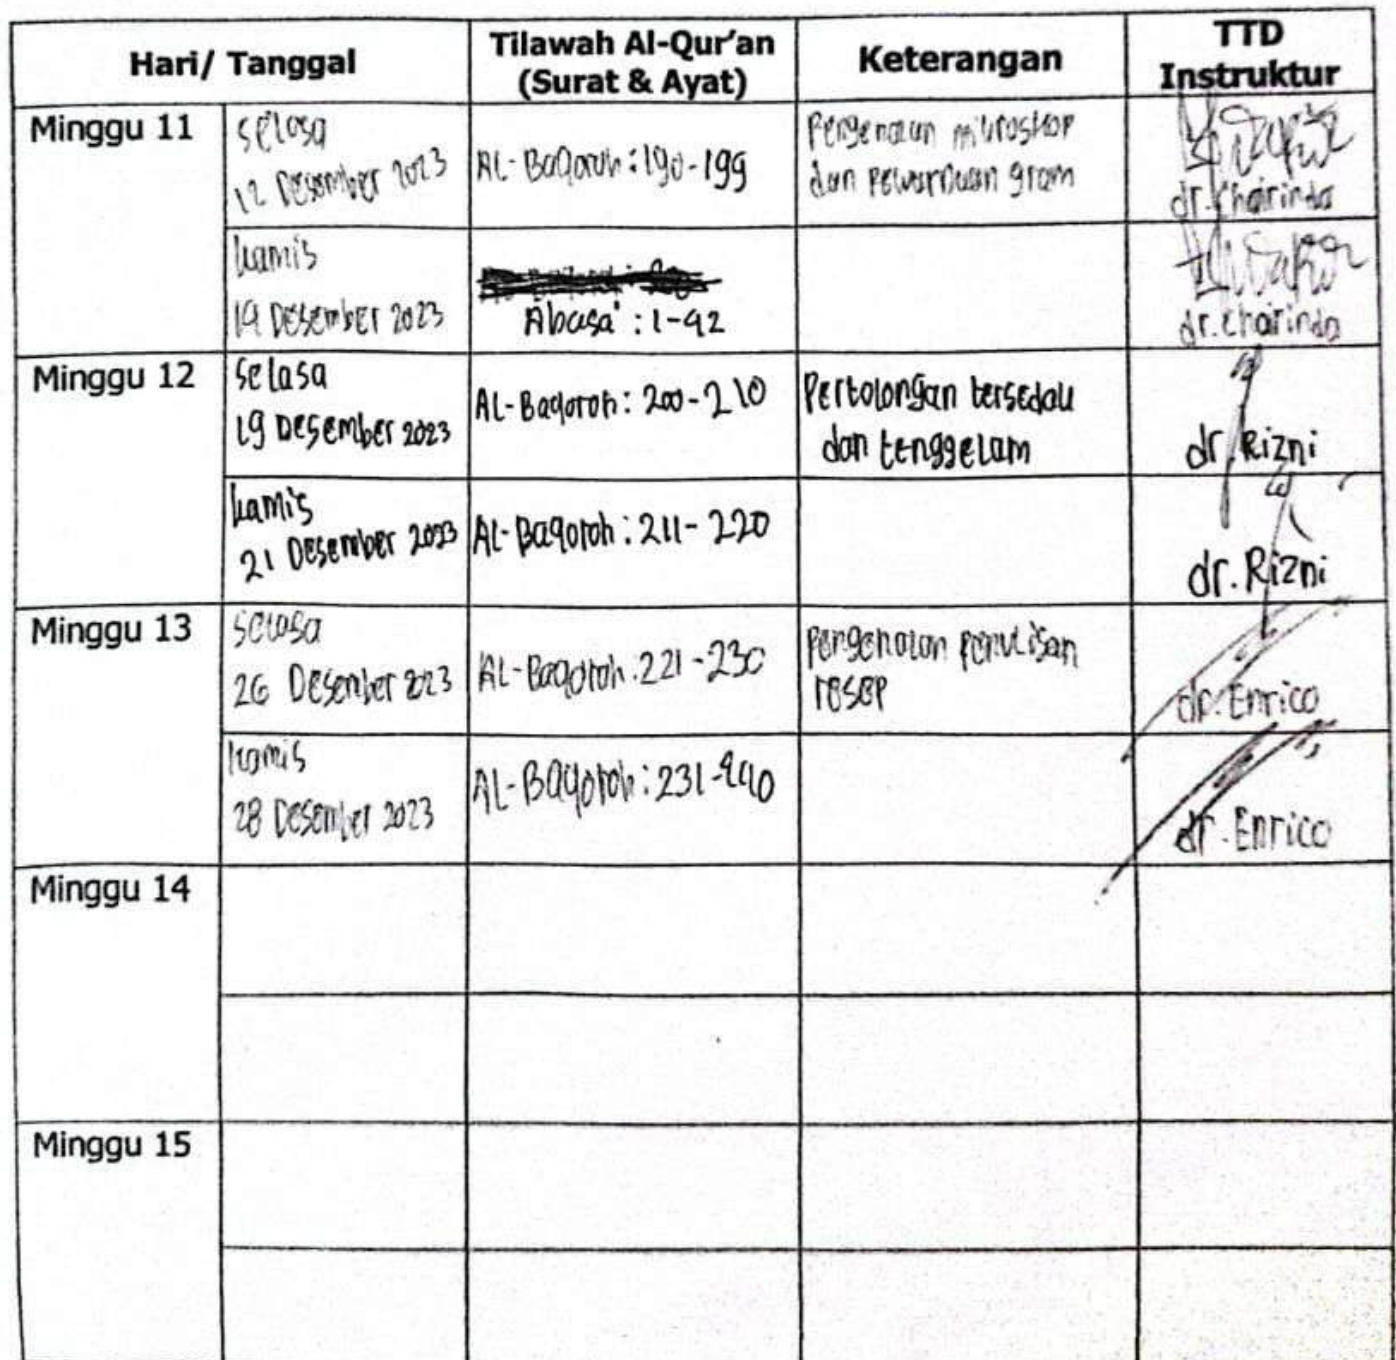 Hari/ Tanggal
Tilawah Al-Qur'an
(Surat & Ayat)
Keterangan
TTD
Instruktur
Minggu 11
selasa
12 Desember 2023
AL-Baqoroh : 190-199
Pengenalan mikroskop
dan pewarnaan gram
dr. Chairinda
kamis
14 Desember 2023
Abasa : 1-42
dr. Chairinda
Minggu 12
selasa
19 Desember 2023
AL-Baqoroh : 200-210
Pertolongan tersedak
dan tenggelam
dr. Rizni
kamis
21 Desember 2023
AL-Baqoroh : 211-220
dr. Rizni
Minggu 13
selasa
26 Desember 2023
AL-Baqoroh : 221-230
pengenalan penulisan
resep
dr. Enrico
kamis
28 Desember 2023
AL-Baqoroh : 231-240
dr. Enrico
Minggu 14
Minggu 15